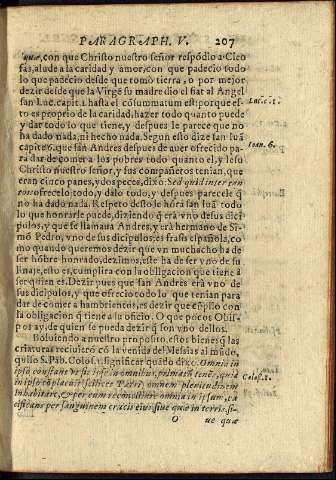 PARAGRAPH. V. 207
quæ, con que Christo nuestro señor respõdio a Cleo
fas, alude a la caridad y amor, con que padecio todo
lo que padecio desde que tomò tierra, o por mejor
dezir desde que la Virgẽ su madre dio el fiat al Angel
san Luc. capit. 1. hasta el cõsummatum est: porque es-
to es proprio de la caridad, hazer todo quanto puede
y dar todo lo que tiene, y despues le parece que no
ha dado nada, ni hecho nada. Segun esto dize san Iuã
capite 6. que san Andres despues de auer ofrecido pa-
ra dar de comer a los pobres todo quanto el, y Iesu
Christo nuestro Señor, y sus compañeros tenian, que
eran cinco panes, y dos peces, dixo: Sed quid inter tan
tos ofrecelo todo, y dalo todo, y despues parecele q̃
no ha dada nada. Respeto desto le hõra san Iuã todo
lo que honrarle puede, diziendo q̃ erà vno de sus dici
pulos, y que se llamaua Andres, y erà hermano de Si-
mõ Pedro, vno de sus dicipulos: es frasis española, co
mo quando queremos dezir que vn muchacho ha de
ser hõbre honrado, dezimos, este ha de ser vno de su
linaje, esto es, cumplira con la obligacion que tiene a
ser quien es. Dezir pues que san Andres erà vno de
sus dicipulos, y que ofrecio todo lo que tenian para
dar de comer a hambrientos, es dezir que cũplio con
la obligacion q̃ tiene a su oficio. O que pocos Obis-
pos ay, de quien se pueda dezir q̃ son vno dellos.
Boluiendo a nuestro proposito, estos bienes q̃ las
criaturas recibierõ cõ la venida del Messias al mũdo,
quiso S. Pab. Colos. 1. significar quãdo dixo: Omnia in
ipso constant vt sit ipse in omnibus, primatũ tenẽs, quia
in ipso cõplacuit, scilicet Patri, omnem plenitudinem
inhabitare, & per eum reconciliare omnia in ipsum, pa
cificans per sanguinem crucis eius siue quæ in terris, si-
O ue quæ
Luc. c. 1.
Ioan. 6.
Colos. 1.